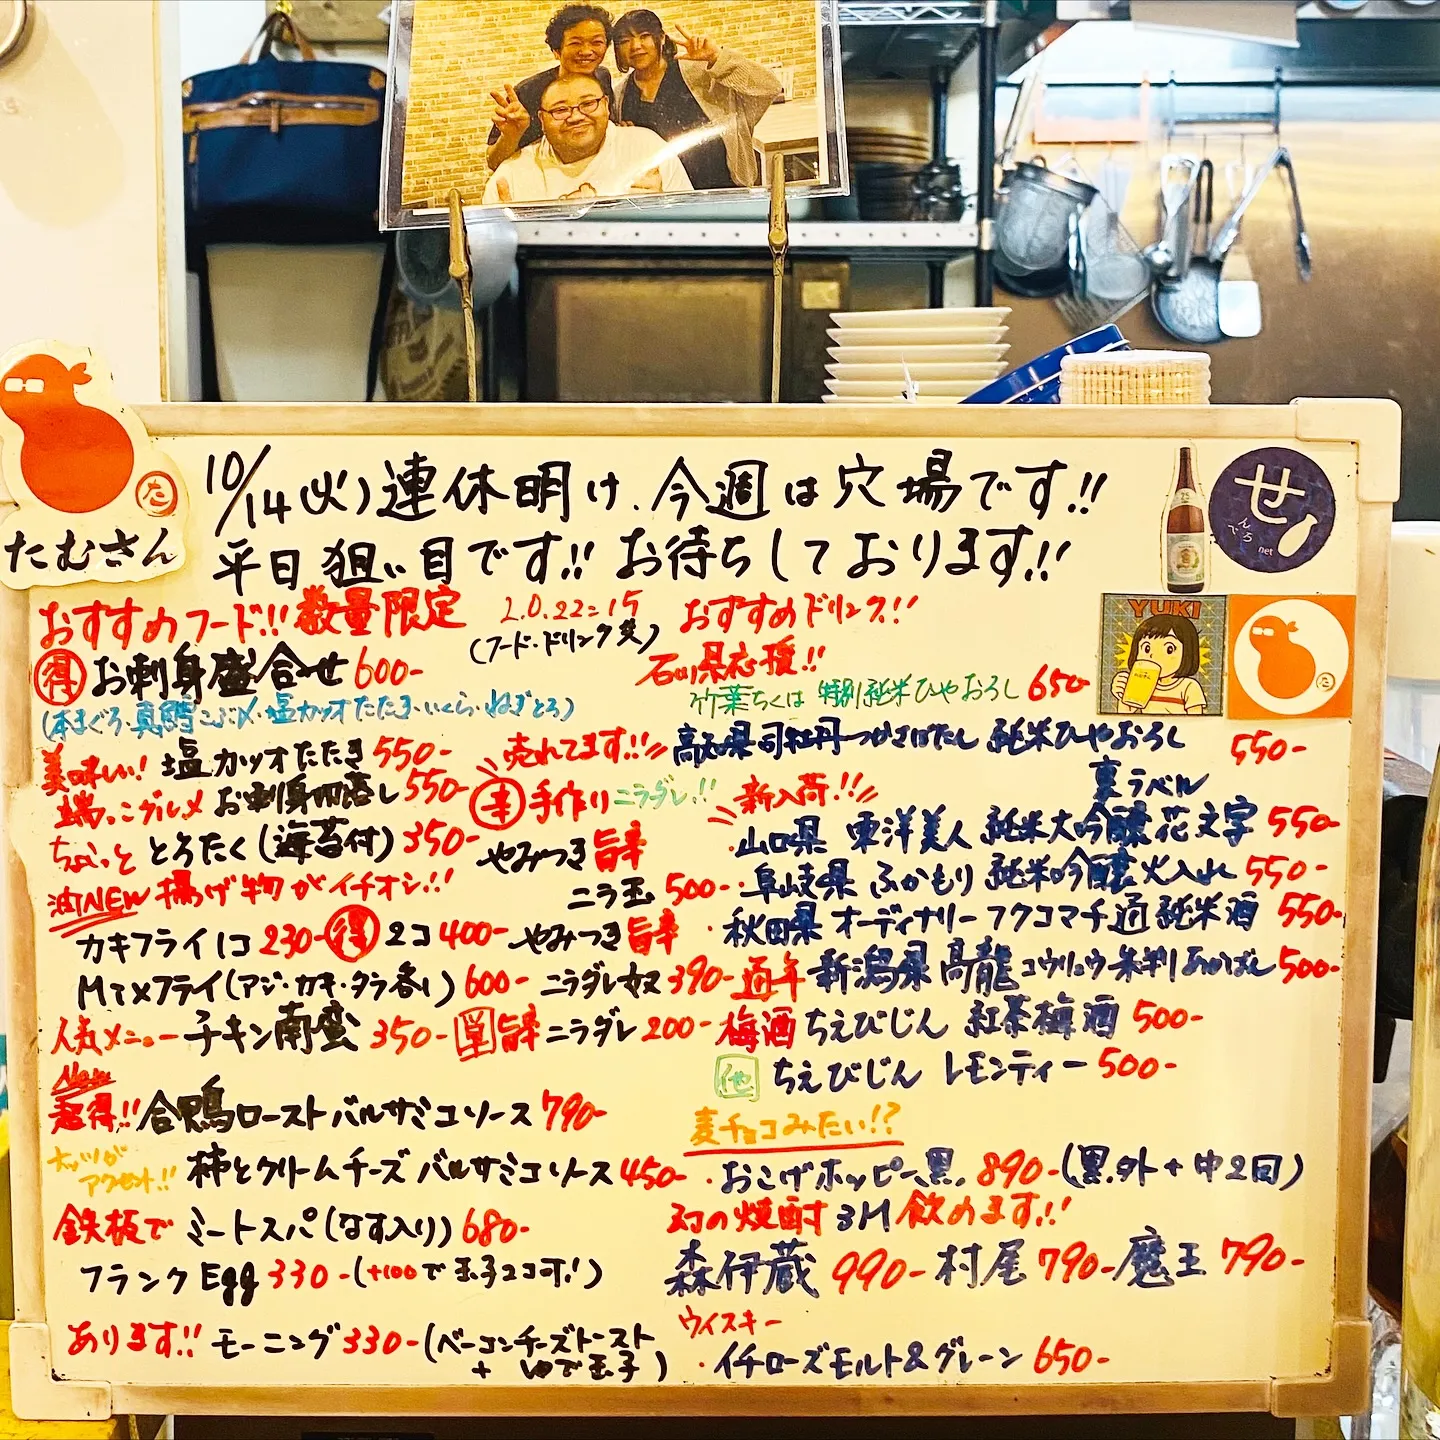 10/14(火)連休明け、今週は穴場です!!
平日狙い目です!! お待ちしております!!
た
たむさん
せ
んべろ
net
YUKI
おすすめフード!! 数量限定
L.O.22:15
(フード・ドリンク共)
得 お刺身盛合せ 600-
(本まぐろ・真鯛こぶ〆・塩カツオたたき・いくら・ねぎとろ)
美味しい! 塩カツオたたき 550-
端っこグルメ お刺身切落し 550-
ちょっと とろたく(海苔付) 350-
油NEW 揚げ物がイチオシ!!
カキフライ 1コ 230- 得 2コ 400-
Mixフライ(アジ・カキ・タラ香り) 600-
人気メニュー チキン南蛮 350-
New
超得!! 合鴨ローストバルサミコソース 790-
ナッツが
アクセント!! 柿とクリームチーズバルサミコソース 450-
鉄板で ミートスパ(なす入り) 680-
フランクEgg 330-(+100で玉子2コ可!)
あります!! モーニング 330-(ベーコンチーズトースト
+ ゆで玉子)
売れてます!!
辛 手作り ニラダレ!!
やみつき旨辛
ニラ玉 500-
やみつき旨辛
ニラダレ奴 390-
単 旨辛ニラダレ 200-
おすすめドリンク!!
石川県応援!!
竹葉ちくは 特別純米ひやおろし 650-
高知県 司牡丹つかさぼたん 純米ひやおろし 550-
新入荷!!
裏ラベル
・山口県 東洋美人 純米大吟醸 花文字 550-
・阜岐県 ふかもり 純米吟醸 火入れ 550-
・秋田県 オーディナリーフクコマチ 過 純米酒 550-
通年 新潟県 高龍コウリュウ 朱判あかばん 500-
梅酒 ちえびじん 紅茶梅酒 500-
他 ちえびじん レモンティー 500-
麦チョコみたい!?
・おこげホッピー、黒、890-(黒、外+中2回)
幻の焼酎 3M 飲めます!!
森伊蔵 990- 村尾 790- 魔王 790-
ウイスキー
・イチローズモルト&グレーン 650-